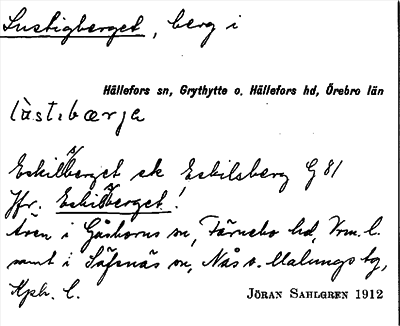 Lustigberget, berg i
Hällefors sn, Grythytte o. Hällefors hd, Örebro län
lùstıbærja
Eskilsberget ek Eskilsberg G 81
Jfr. Eskilsberget!
Även i Gåsborns sn, Färnebo hd, Vrm. l.
samt i Säfsnäs sn, Nås o. Malungs tg,
Kpbr. l.
JÖRAN SAHLGREN 1912